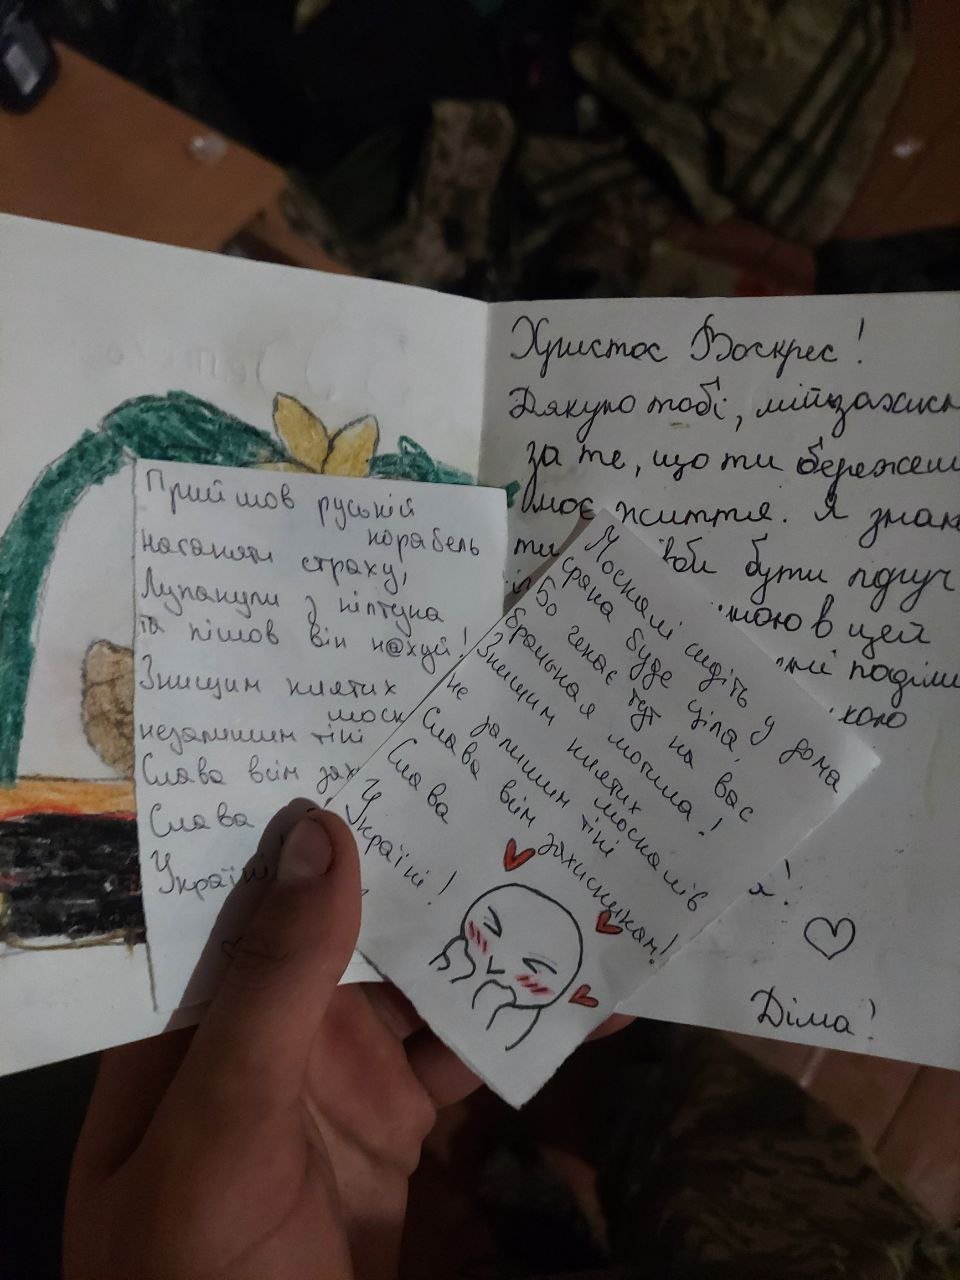 Христос Воскрес!
Дякую тобі, мій захисн
за те, що ти бережеш
моє життя. Я знаю
ти
бути підруч
мою в цей
поділи
кою
я!
Діма!
Прийшов руській
корабель
наганяти страху,
Лупанули зніптуна
та пішов він н@хуй!
Знищим клятих
моск
незалишим тіні
Слава всім зах
Слава
Україні
Москалі сидіть у дома
срака буде ціла,
Бо чекає тут на вас
братська могила!
Знищим клятих москалів
не залишим тіні
Слава всім захисникам!
Слава
Україні!